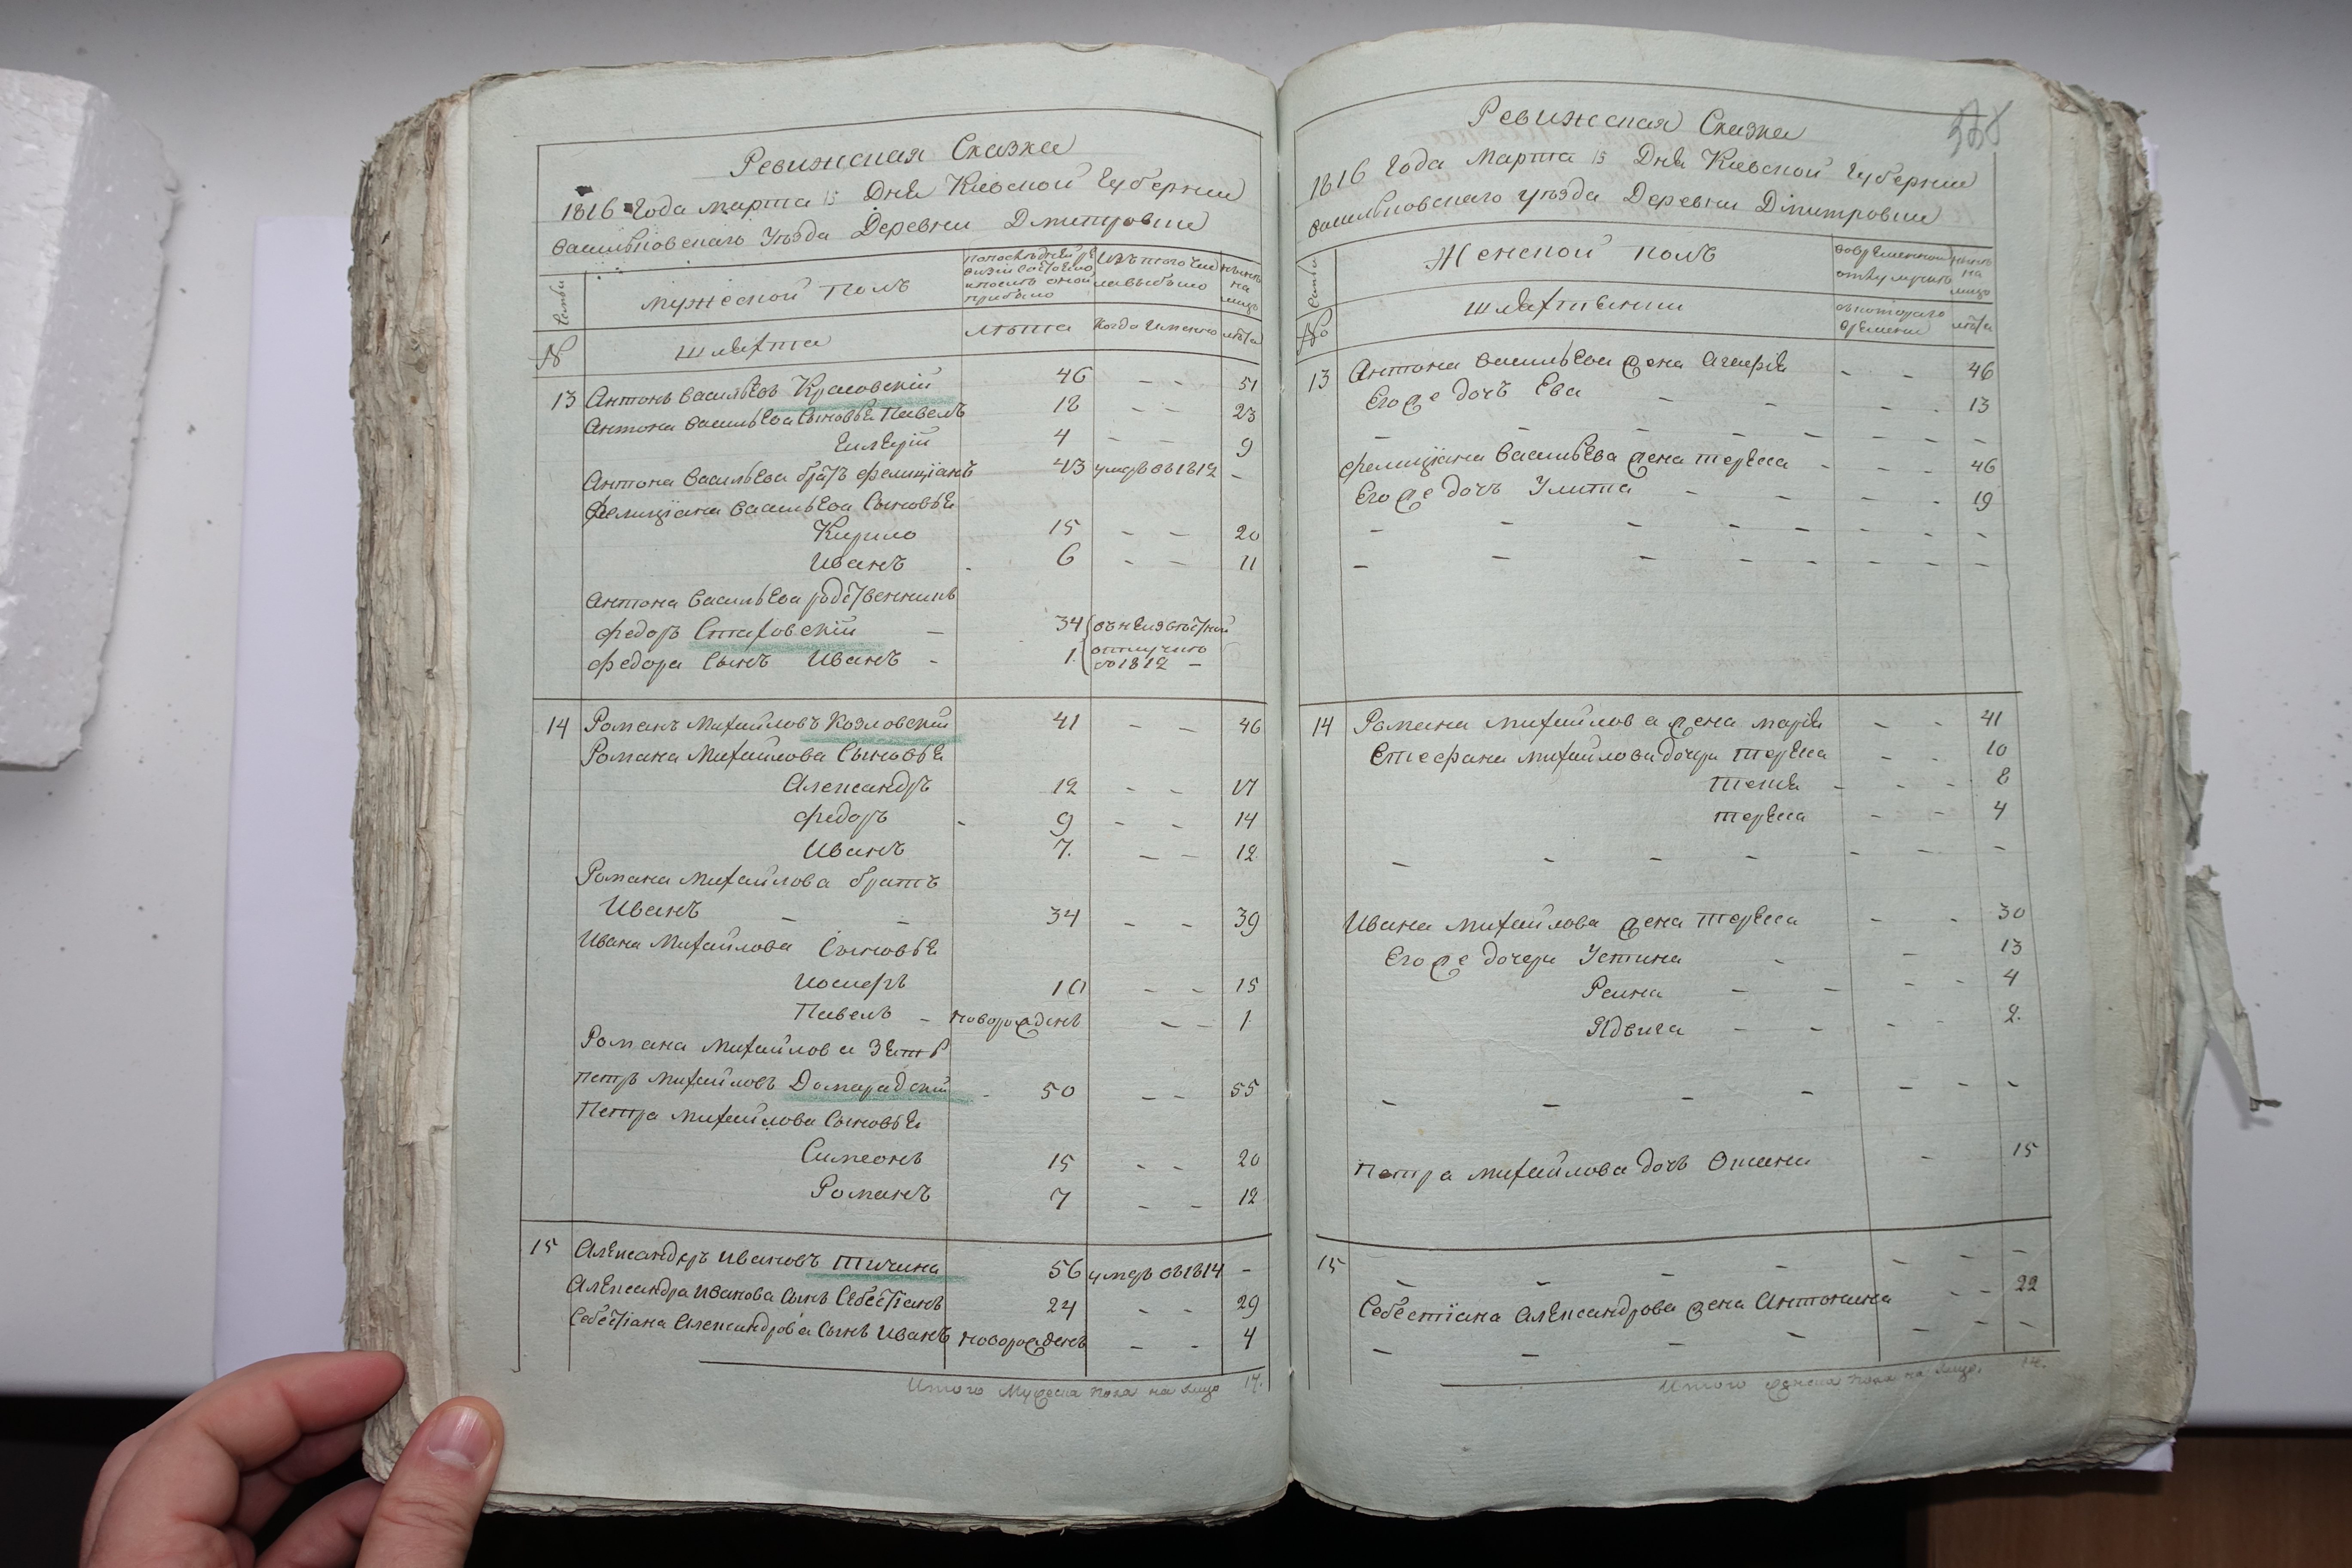 Ревижская Сказка
1816 Года марта 15 Дня Киевской Губернии
васильковскаго Уезда Деревни Дмитровки
Семьи
мужеской полъ
Изъ того числа выбыло
ныне на лицо
№
шляхта
лѣта
когда именно
лѣта
13 Антонъ васильевъ Красовскій 46 - - 51
Антона васильева Сыновья Павелъ 18 - - 23
4 - - 9
Антона васильева братъ фелиціанъ 43 умеръ въ 1812 -
Фелиціана васильева Сыновья
Кирило 15 - - 20
Иванъ - 6 - - 11
Антона васильева родственникъ
федоръ Стаховскій - 34
федора Сынъ Иванъ - 1.
отлучился
въ 1812 -
14 Романъ михайловъ Козловскій 41 - - 46
Романа михайлова Сыновья
Александръ 12 - - 17
федоръ - 9 - - 14
Иванъ 7. - - 12
Романа михайлова братъ
Иванъ - - 34 - - 39
Ивана михайлова Сыновья
Иосифъ 10 - - 15
Павелъ - новорожденъ - - 1
Романа михайлова Зять
петръ михайловъ Домарадскій - 50 - - 55
Петра михайлова Сыновья
Симеонъ 15 - - 20
Романъ 7 - - 12
15 Александръ ивановъ птичина 56 умеръ въ 1814 -
Александра иванова Сынъ Себестіанъ 24 - - 29
Себестіана Александрова Сынъ Иванъ новорожденъ - - 4
Итого Мужеска пола на лицо 17.
Ревижская Сказка
1816 Года марта 15 Дня Киевской Губернии
васильковскаго уезда Деревни Дмитровки
Семьи
Женской полъ
ныне на лицо
№
шляхтянки
съ котораго времени
лѣта
13 Антона васильева жена Агафія - - 46
Его же дочъ Ева - - - - 13
фелиціана васильева жена тереса - - - 46
Его же дочъ Улита - - - - 19
14 Романа михайлова жена марія - - 41
Стефана михайлова дочери тереса - - 10
текля - - - 8
тереса - - 4
Ивана михайлова жена тереса - - 30
Его же дочери Устина - - 13
- - - - 4
Ядвига - - - - 2.
Петра михайлова дочъ - 15
15 - - - - - - -
Себестіана Александрова жена Антонина - - 22
Итого женска пола на лицо. 14.